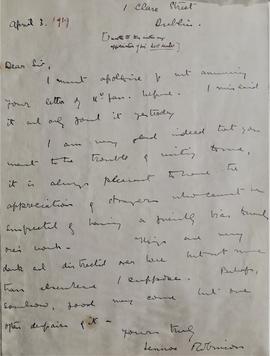 1 Clare Street
Dublin.
April 3. 1919
[I wrote to this author my appreciation of his]
Dear Sir,
I must apologise for not answering
your letter of 11th Jan. before. I mislaid
it and only found it yesterday
I am very glad indeed that you
went to the trouble of writing to me,
it is always pleasant to have the
appreciation of strangers who cannot be
suspected of having a friendly bias towards
one's work. Things are very
dark and distracted over here but not more
than elsewhere I suppose. Perhaps,
somehow, good may come but one
often despairs of it –
yours truly
Lennox Robinson